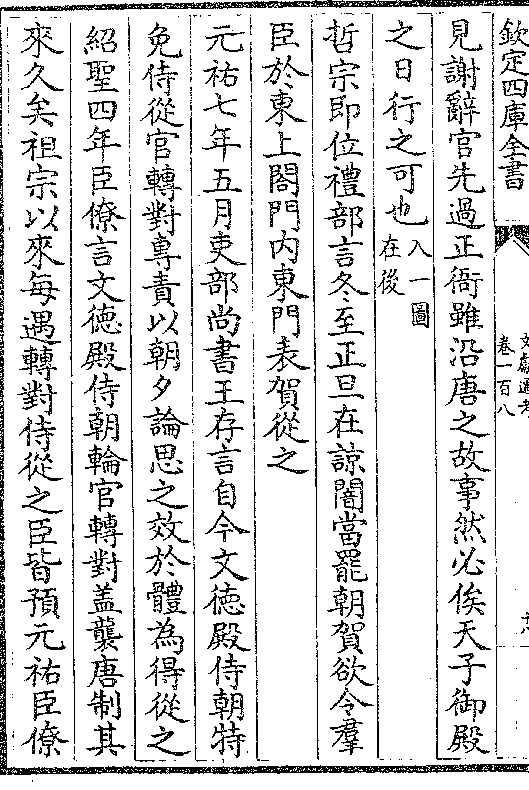 欽定四庫全書
卷一百八
見謝辭官先過正衙雖沿唐之故事然必俟天子御殿
之日行之可也入一圖在後
哲宗即位禮部言冬至正旦在諒闇當罷朝賀欲令羣
臣於東上閤門内東門表賀從之
元祐七年五月吏部尚書王存言自今文徳殿侍朝特
免侍從官轉對專責以朝夕論思之效於體為得從之
紹聖四年臣僚言文徳殿侍朝輪官轉對盖襲唐制其
來久矣祖宗以來每遇轉對侍從之臣皆預元祐臣僚